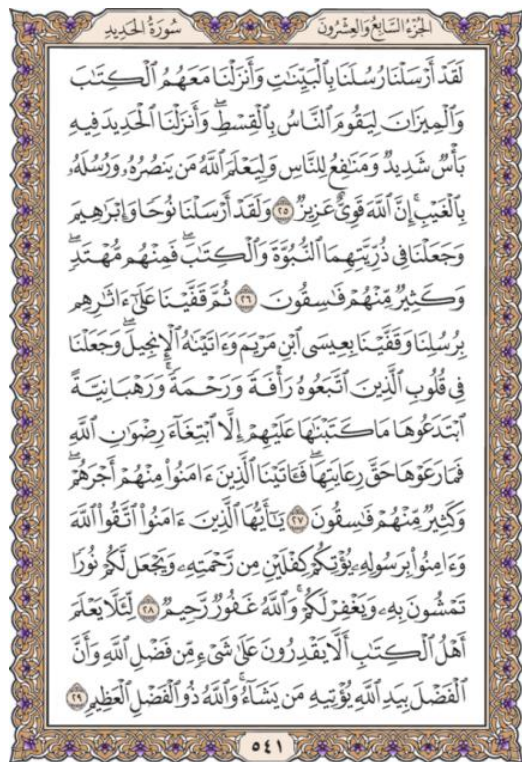 سُورَةُ الحَدِيدِ
الجُزْءُ السَّابِعُ وَالعِشْرُونَ
لَقَدۡ أَرۡسَلۡنَا رُسُلَنَا بِٱلۡبَيِّنَٰتِ وَأَنزَلۡنَا مَعَهُمُ ٱلۡكِتَٰبَ
وَٱلۡمِيزَانَ لِيَقُومَ ٱلنَّاسُ بِٱلۡقِسۡطِۖ وَأَنزَلۡنَا ٱلۡحَدِيدَ فِيهِ
بَأۡسٞ شَدِيدٞ وَمَنَٰفِعُ لِلنَّاسِ وَلِيَعۡلَمَ ٱللَّهُ مَن يَنصُرُهُۥ وَرُسُلَهُۥ
بِٱلۡغَيۡبِۚ إِنَّ ٱللَّهَ قَوِيٌّ عَزِيزٞ ٢٥ وَلَقَدۡ أَرۡسَلۡنَا نُوحٗا وَإِبۡرَٰهِيمَ
وَجَعَلۡنَا فِي ذُرِّيَّتِهِمَا ٱلنُّبُوَّةَ وَٱلۡكِتَٰبَۖ فَمِنۡهُم مُّهۡتَدٖۖ
وَكَثِيرٞ مِّنۡهُمۡ فَٰسِقُونَ ٢٦ ثُمَّ قَفَّيۡنَا عَلَىٰٓ ءَاثَٰرِهِم
بِرُسُلِنَا وَقَفَّيۡنَا بِعِيسَى ٱبۡنِ مَرۡيَمَ وَءَاتَيۡنَٰهُ ٱلۡإِنجِيلَۖ وَجَعَلۡنَا
فِي قُلُوبِ ٱلَّذِينَ ٱتَّبَعُوهُ رَأۡفَةٗ وَرَحۡمَةٗۚ وَرَهۡبَانِيَّةً
ٱبۡتَدَعُوهَا مَا كَتَبۡنَٰهَا عَلَيۡهِمۡ إِلَّا ٱبۡتِغَآءَ رِضۡوَٰنِ ٱللَّهِ
فَمَا رَعَوۡهَا حَقَّ رِعَايَتِهَاۖ فَـَٔاتَيۡنَا ٱلَّذِينَ ءَامَنُواْ مِنۡهُمۡ أَجۡرَهُمۡۖ
وَكَثِيرٞ مِّنۡهُمۡ فَٰسِقُونَ ٢٧ يَٰٓأَيُّهَا ٱلَّذِينَ ءَامَنُواْ ٱتَّقُواْ ٱللَّهَ
وَءَامِنُواْ بِرَسُولِهِۦ يُؤۡتِكُمۡ كِفۡلَيۡنِ مِن رَّحۡمَتِهِۦ وَيَجۡعَل لَّكُمۡ نُورٗا
تَمۡشُونَ بِهِۦ وَيَغۡفِرۡ لَكُمۡۚ وَٱللَّهُ غَفُورٞ رَّحِيمٞ ٢٨ لِّئَلَّا يَعۡلَمَ
أَهۡلُ ٱلۡكِتَٰبِ أَلَّا يَقۡدِرُونَ عَلَىٰ شَيۡءٖ مِّن فَضۡلِ ٱللَّهِ وَأَنَّ
ٱلۡفَضۡلَ بِيَدِ ٱللَّهِ يُؤۡتِيهِ مَن يَشَآءُۚ وَٱللَّهُ ذُو ٱلۡفَضۡلِ ٱلۡعَظِيمِ ٢٩
٥٤١